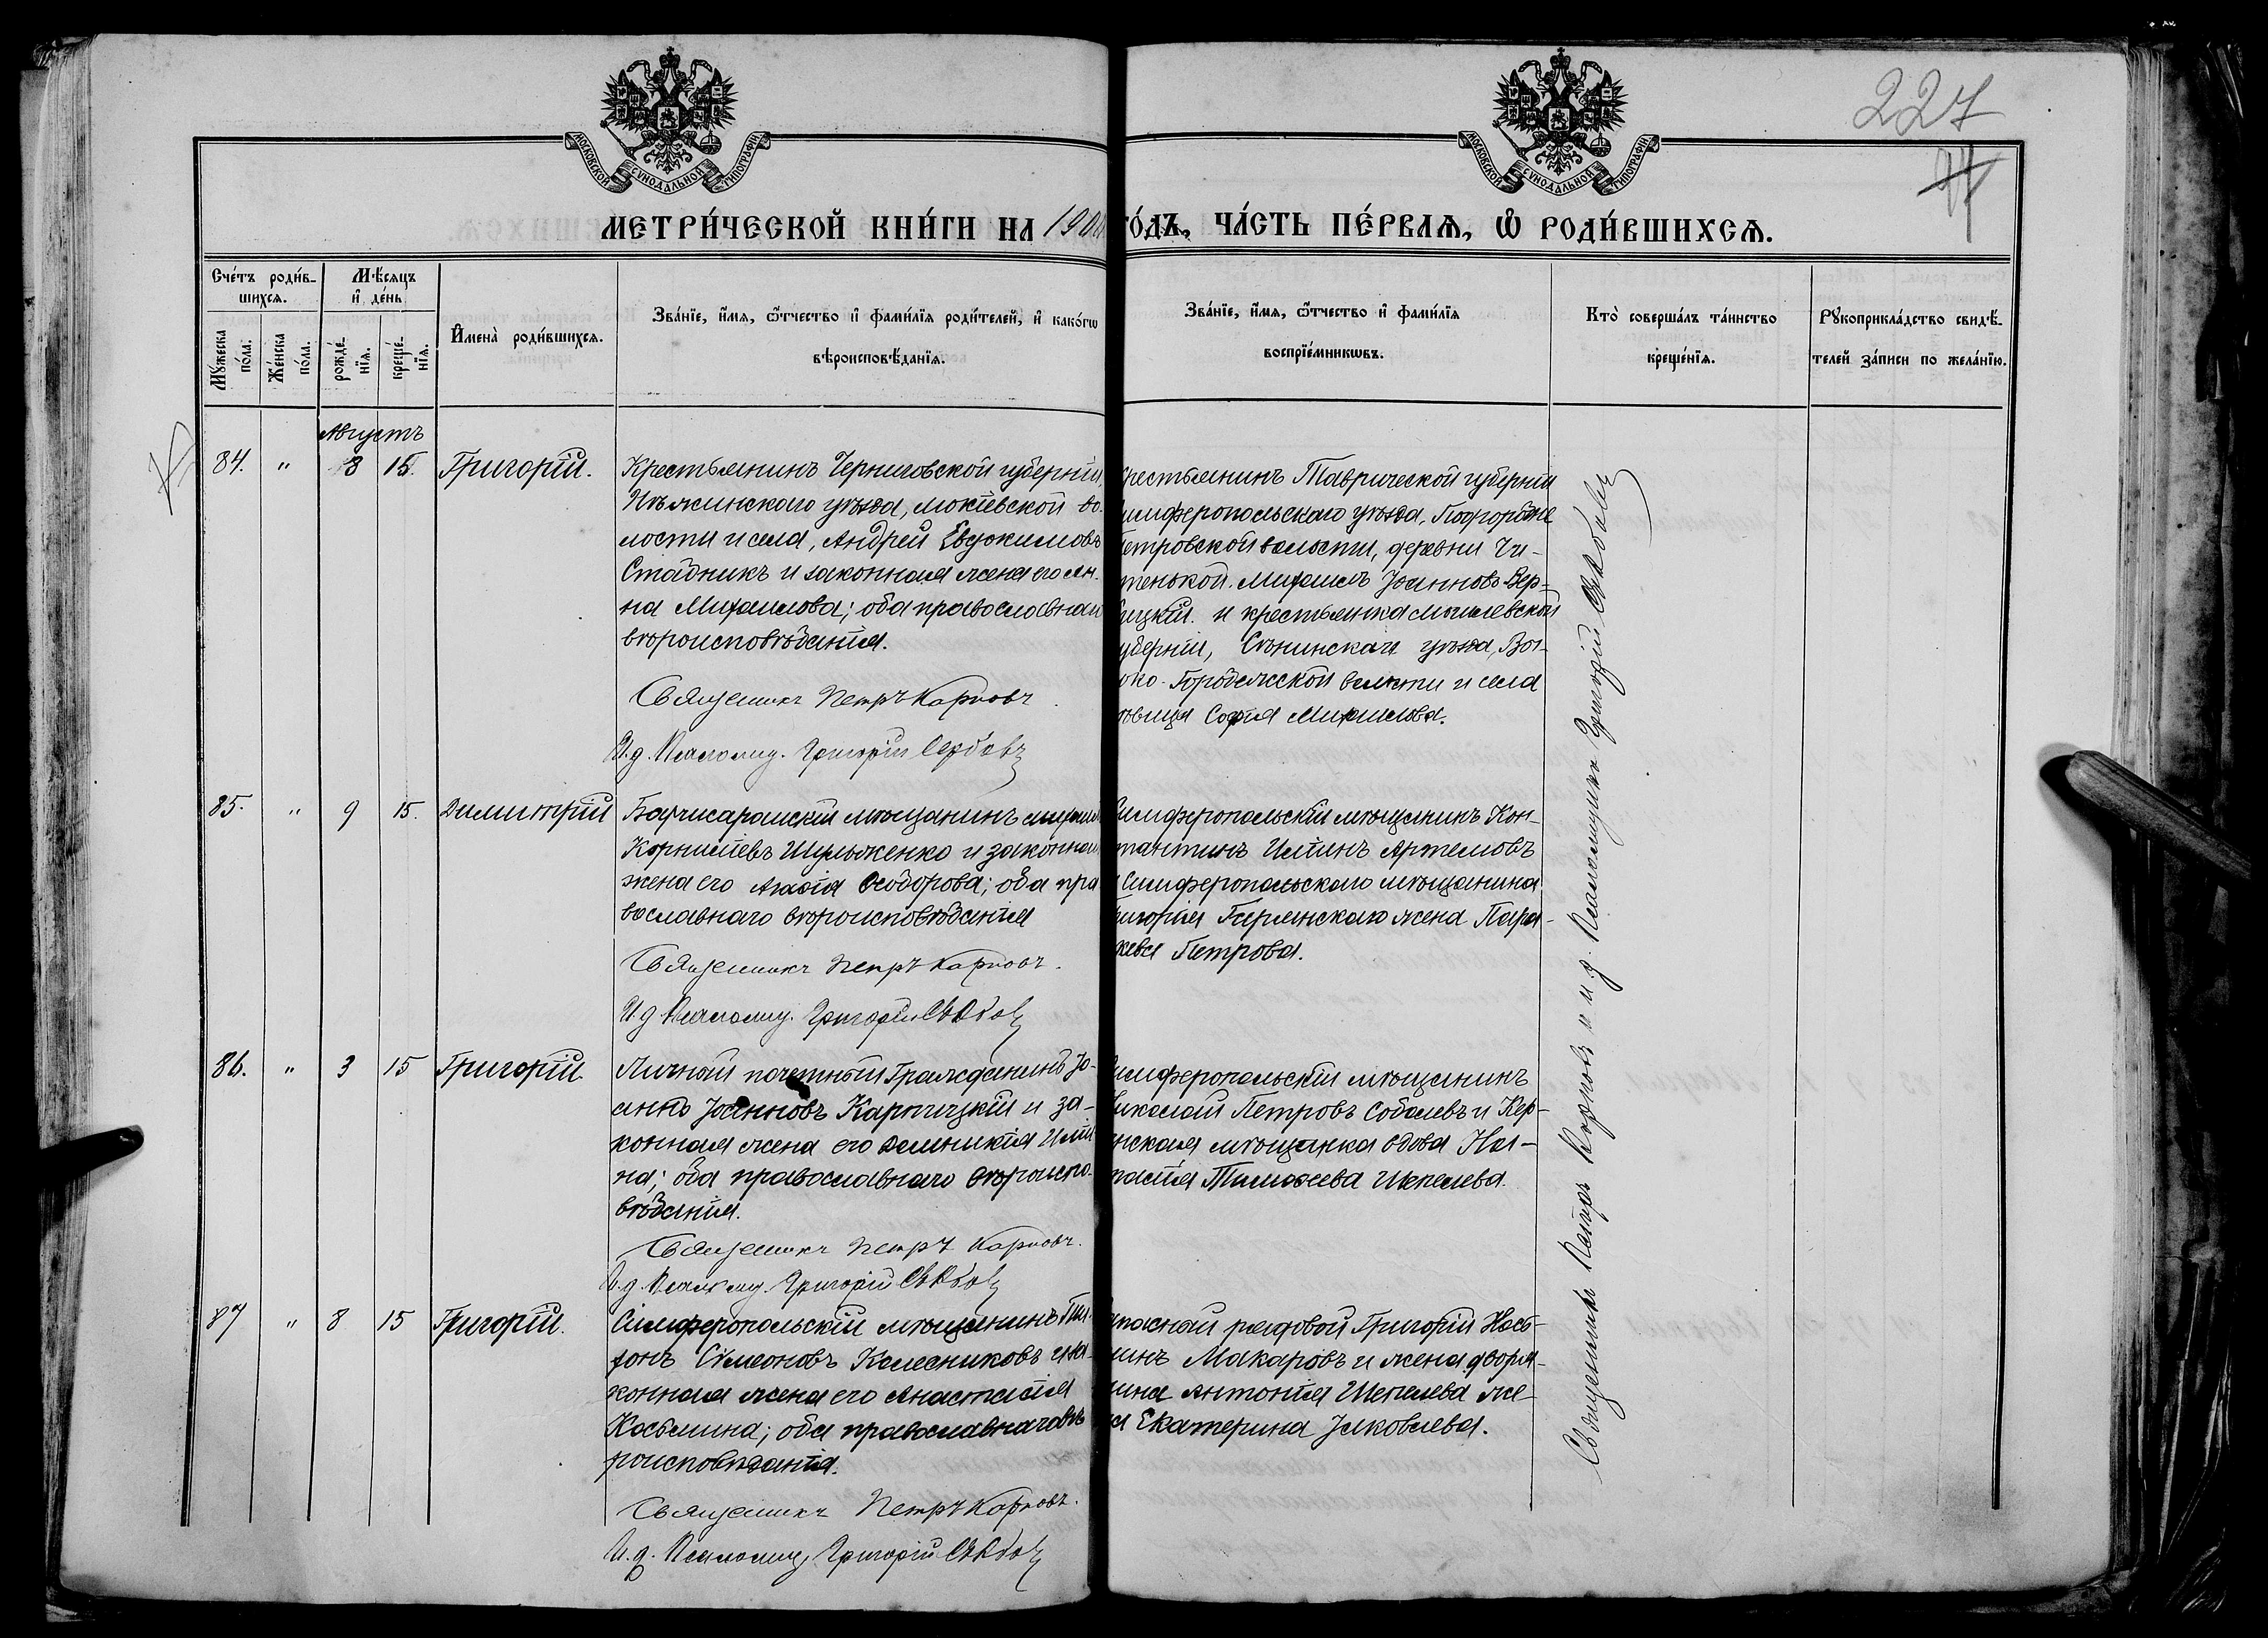 227
МОСКОВСКОЙ СѴНОДАЛЬНОЙ ТИПОГРАФІИ.
МОСКОВСКОЙ СѴНОДАЛЬНОЙ ТИПОГРАФІИ.
МЕТРИ́ЧЕСКОЙ КНИ́ГИ НА 190
ГО́ДЪ, ЧА́СТЬ ПЕ́РВАѦ, Ѽ РОДИ́ВШИХСѦ.
Сче́тъ роди́в-
шихся.
Му́жеска
по́ла.
Же́нска
по́ла.
Мѣ́сяцъ
и҆ де́нь
рожде́-
нїя.
креще́-
нїя.
И҆мена̀ роди́вшихся.
Зва́нїе, и҆́мя, ѻ҆́тчество и҆ фами́лїя роди́телей, и҆ како́гѡ
вѣроисповѣ́данїя.
Зва́нїе, и҆́мя, ѻ҆́тчество и҆ фами́лїя
воспрїе́мникѡвъ.
Кто̀ соверша́лъ та́инство
креще́нїя.
Рꙋкоприкла́дство свидѣ́-
телей за́писи по жела́нїю.
Августъ
84. " 8 15. Григорій.
Крестьянинъ Черниговской губерніи,
Нѣжинскаго уѣзда, Мокіевской во-
лости и села, Андрей Евдокимовъ
Стадникъ и законная жена его Ан-
на Михаилова; оба православнаго
вѣроисповѣданія.
Священникъ Петръ Карповъ.
И. д. Псаломщ. Григорій Сербовъ
крестьянинъ Таврической губерніи
Симферопольскаго уѣзда, Подгородне
Петровской волости, деревни Чи-
стенькой, Михаилъ Іоанновъ Вер-
бицкій и крестьянка Могилевской
губерніи, Сѣнинскаго уѣзда, Вол-
Городецкой волости и села
София Михаилова.
85. " 9 15. Димитрій
Бахчисарайскій мѣщанинъ Михаилъ
Корниліевъ Шульженко и законная
жена его Агаѳія Ѳеодорова; оба пра
вославнаго вѣроисповѣданія
Священникъ Петръ Карповъ.
И. д Псаломщ. Григорій Сербовъ
Симферопольскій мѣщанинъ Кон-
стантинъ Иліинъ Артемовъ
и Симферопольскаго мѣщанина
Григорія жена Пара-
скева Петрова.
86. " 3 15 Григорій.
Личный почетный Гражданинъ Іо-
аннъ Іоанновъ Карпицкій и за-
конная жена его Домникія Иліи
на; оба православнаго вѣроиспо-
вѣданія.
Священникъ Петръ Карповъ.
И. д. Псаломщ. Григорій Сербовъ
Симферопольскій мѣщанинъ
Николай Петровъ Соболевъ и Кер-
ченская мѣщанка вдова Ана-
стасія Тимоѳеева Шепелева.
87 " 8 15 Григорій.
Симферопольскій мѣщанинъ Ти-
хонъ Сѵмеоновъ Колесниковъ и за-
конная жена его Анастасія
Косьмина; оба православнаго вѣ
роисповѣданія.
Священникъ Петръ Карповъ.
И. д. Псаломщ. Григорій Сербовъ
Запасный рядовой Григорій Кось-
минъ Макаровъ и жена дворя-
нина Антонія Шепелева же-
на Екатерина Іаковлева.
Священникъ Петръ Карповъ и и. д. Псаломщика Григорій Сербовъ